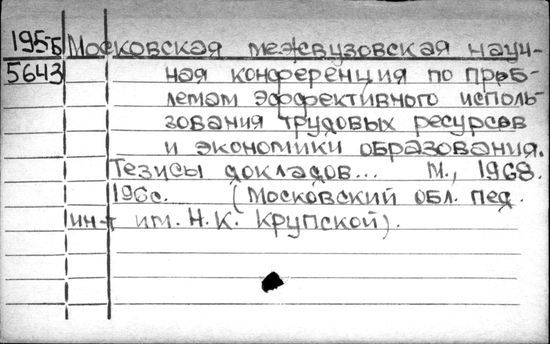 1955 Московская межвузовская науч-
5643 ная конференция по проб-
лемам эффективного исполь-
зования трудовых ресурсов
и экономики образования.
Тезисы докладов... М., 1968.
196с. (Московский обл. пед.
ин-т им. Н.К. Крупской).